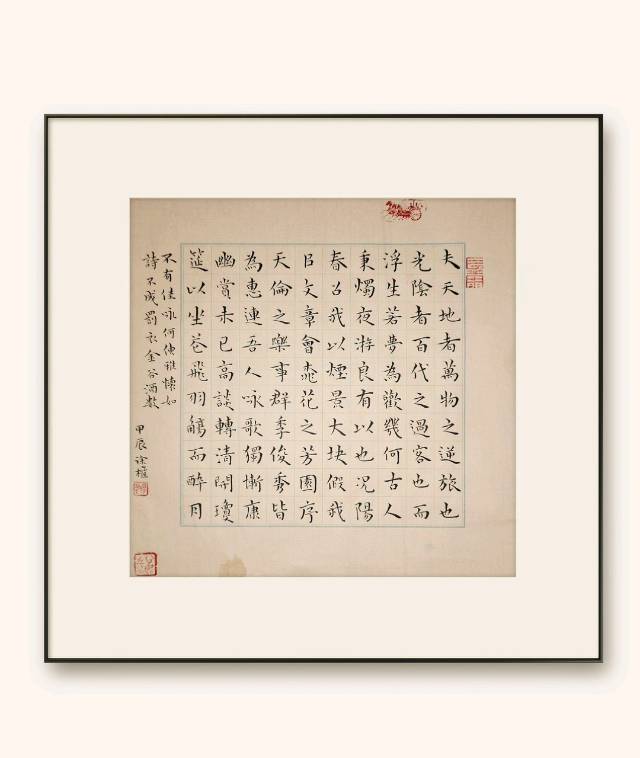 夫天地者萬物之逆旅也
光陰者百代之過客也而
浮生若夢為歡幾何古人
秉燭夜游良有以也況陽
春召我以煙景大块假我
以文章會桃花之芳園序
天倫之樂事群季俊秀皆
為惠連吾人咏歌獨慚康
幽賞未已高談轉清開瓊
筵以坐花飛羽觴而醉月
不有佳咏何伸雅懷如
詩不成罰依金谷酒數
甲辰